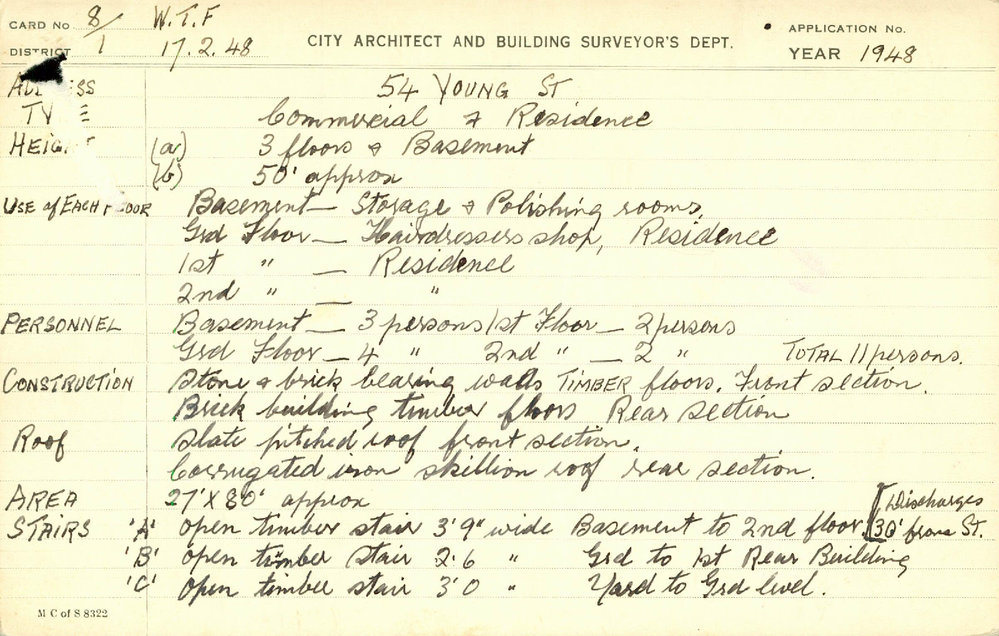 CARD No 8/1 W.T.F APPLICATION No.
DISTRICT 17.2.48 CITY ARCHITECT AND BUILDING SURVEYOR'S DEPT. YEAR 1948
54 YOUNG ST
Commercial & Residence
HEIGHT (a) 3 floors & Basement
(b) 50' approx
USE of EACH FLOOR Basement — Storage & Polishing rooms,
Grd Floor — Hairdressers shop, Residence
1st " — Residence
2nd " — "
PERSONNEL Basement — 3 persons 1st Floor — 2 persons
Grd Floor — 4 " 2nd " — 2 " TOTAL 11 persons.
CONSTRUCTION Stone & brick bearing walls TIMBER floors. Front section.
Brick building timber floors Rear section
ROOF Slate pitched roof front section.
Corrugated iron skillion roof rear section.
AREA 27' x 80' approx
STAIRS 'A' open timber stair 3'9" wide Basement to 2nd floor [Discharges 30' from St.
'B' open timber stair 2'6 " Grd to 1st Rear Building
'C' open timber stair 3'0 " Yard to Grd level.
M C of S 8322